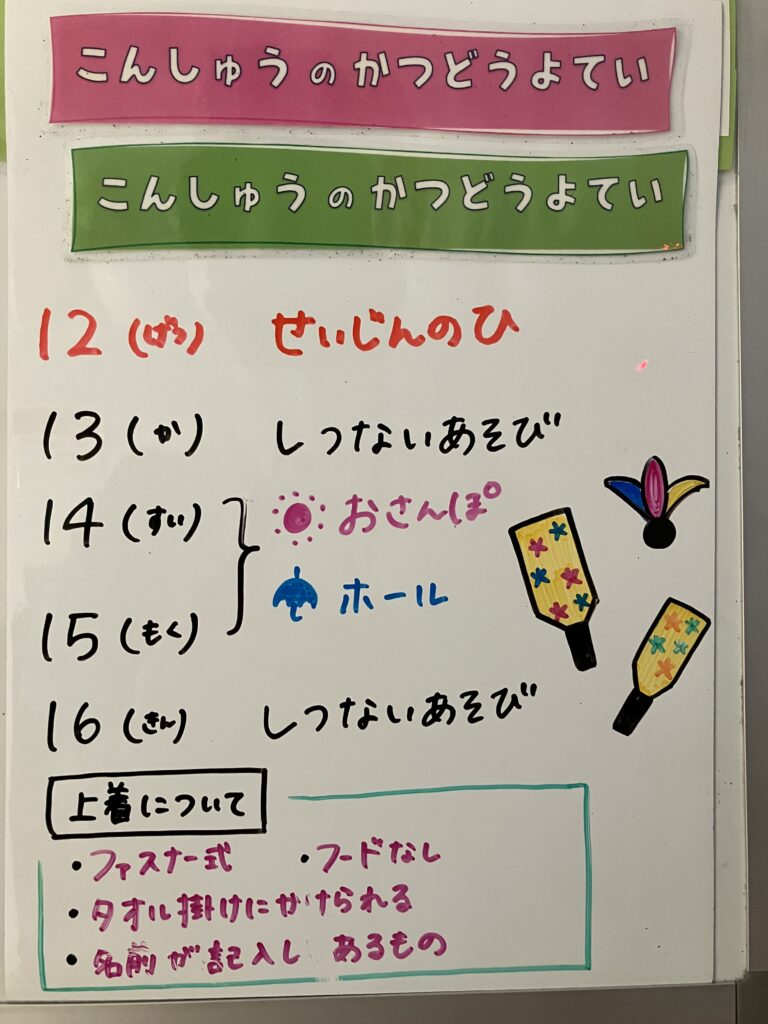 こんしゅうのかつどうよてい
こんしゅうのかつどうよてい
12(げつ) せいじんのひ
13(か) しつないあそび
14(すい) おさんぽ
ホール
15(もく)
16(きん) しつないあそび
上着について
・ファスナー式 ・フードなし
・タオル掛けにかけられる
・名前が記入し あるもの